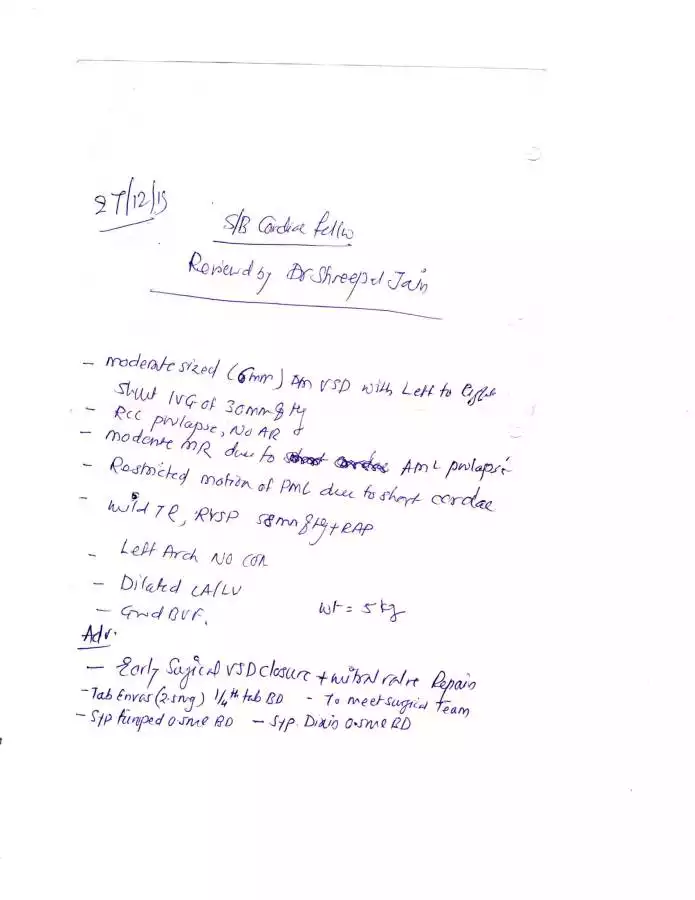 27/12/15
S/B Cardiac fellow
Reviewed by Dr Shreepal Jain
- moderate sized (6mm) PM VSD with Left to Right
Shunt IVG of 30mmg Hg
- RCC prolapse, No AR
- moderate MR due to AML prolapse
- Restricted motion of PML due to short cordae
- mild TR, RVSP 58mmg Hg + RAP
- Left Arch NO COA
- Dilated LA/LV
- Good BVF. wt = 5kg
Adv.
- Early Surgical VSD closure + mitral valve Repair
- Tab Envas (2.5mg) 1/4th tab BD - To meet surgical Team
- Syp 0.5ml BD - Syp. 0.5ml BD